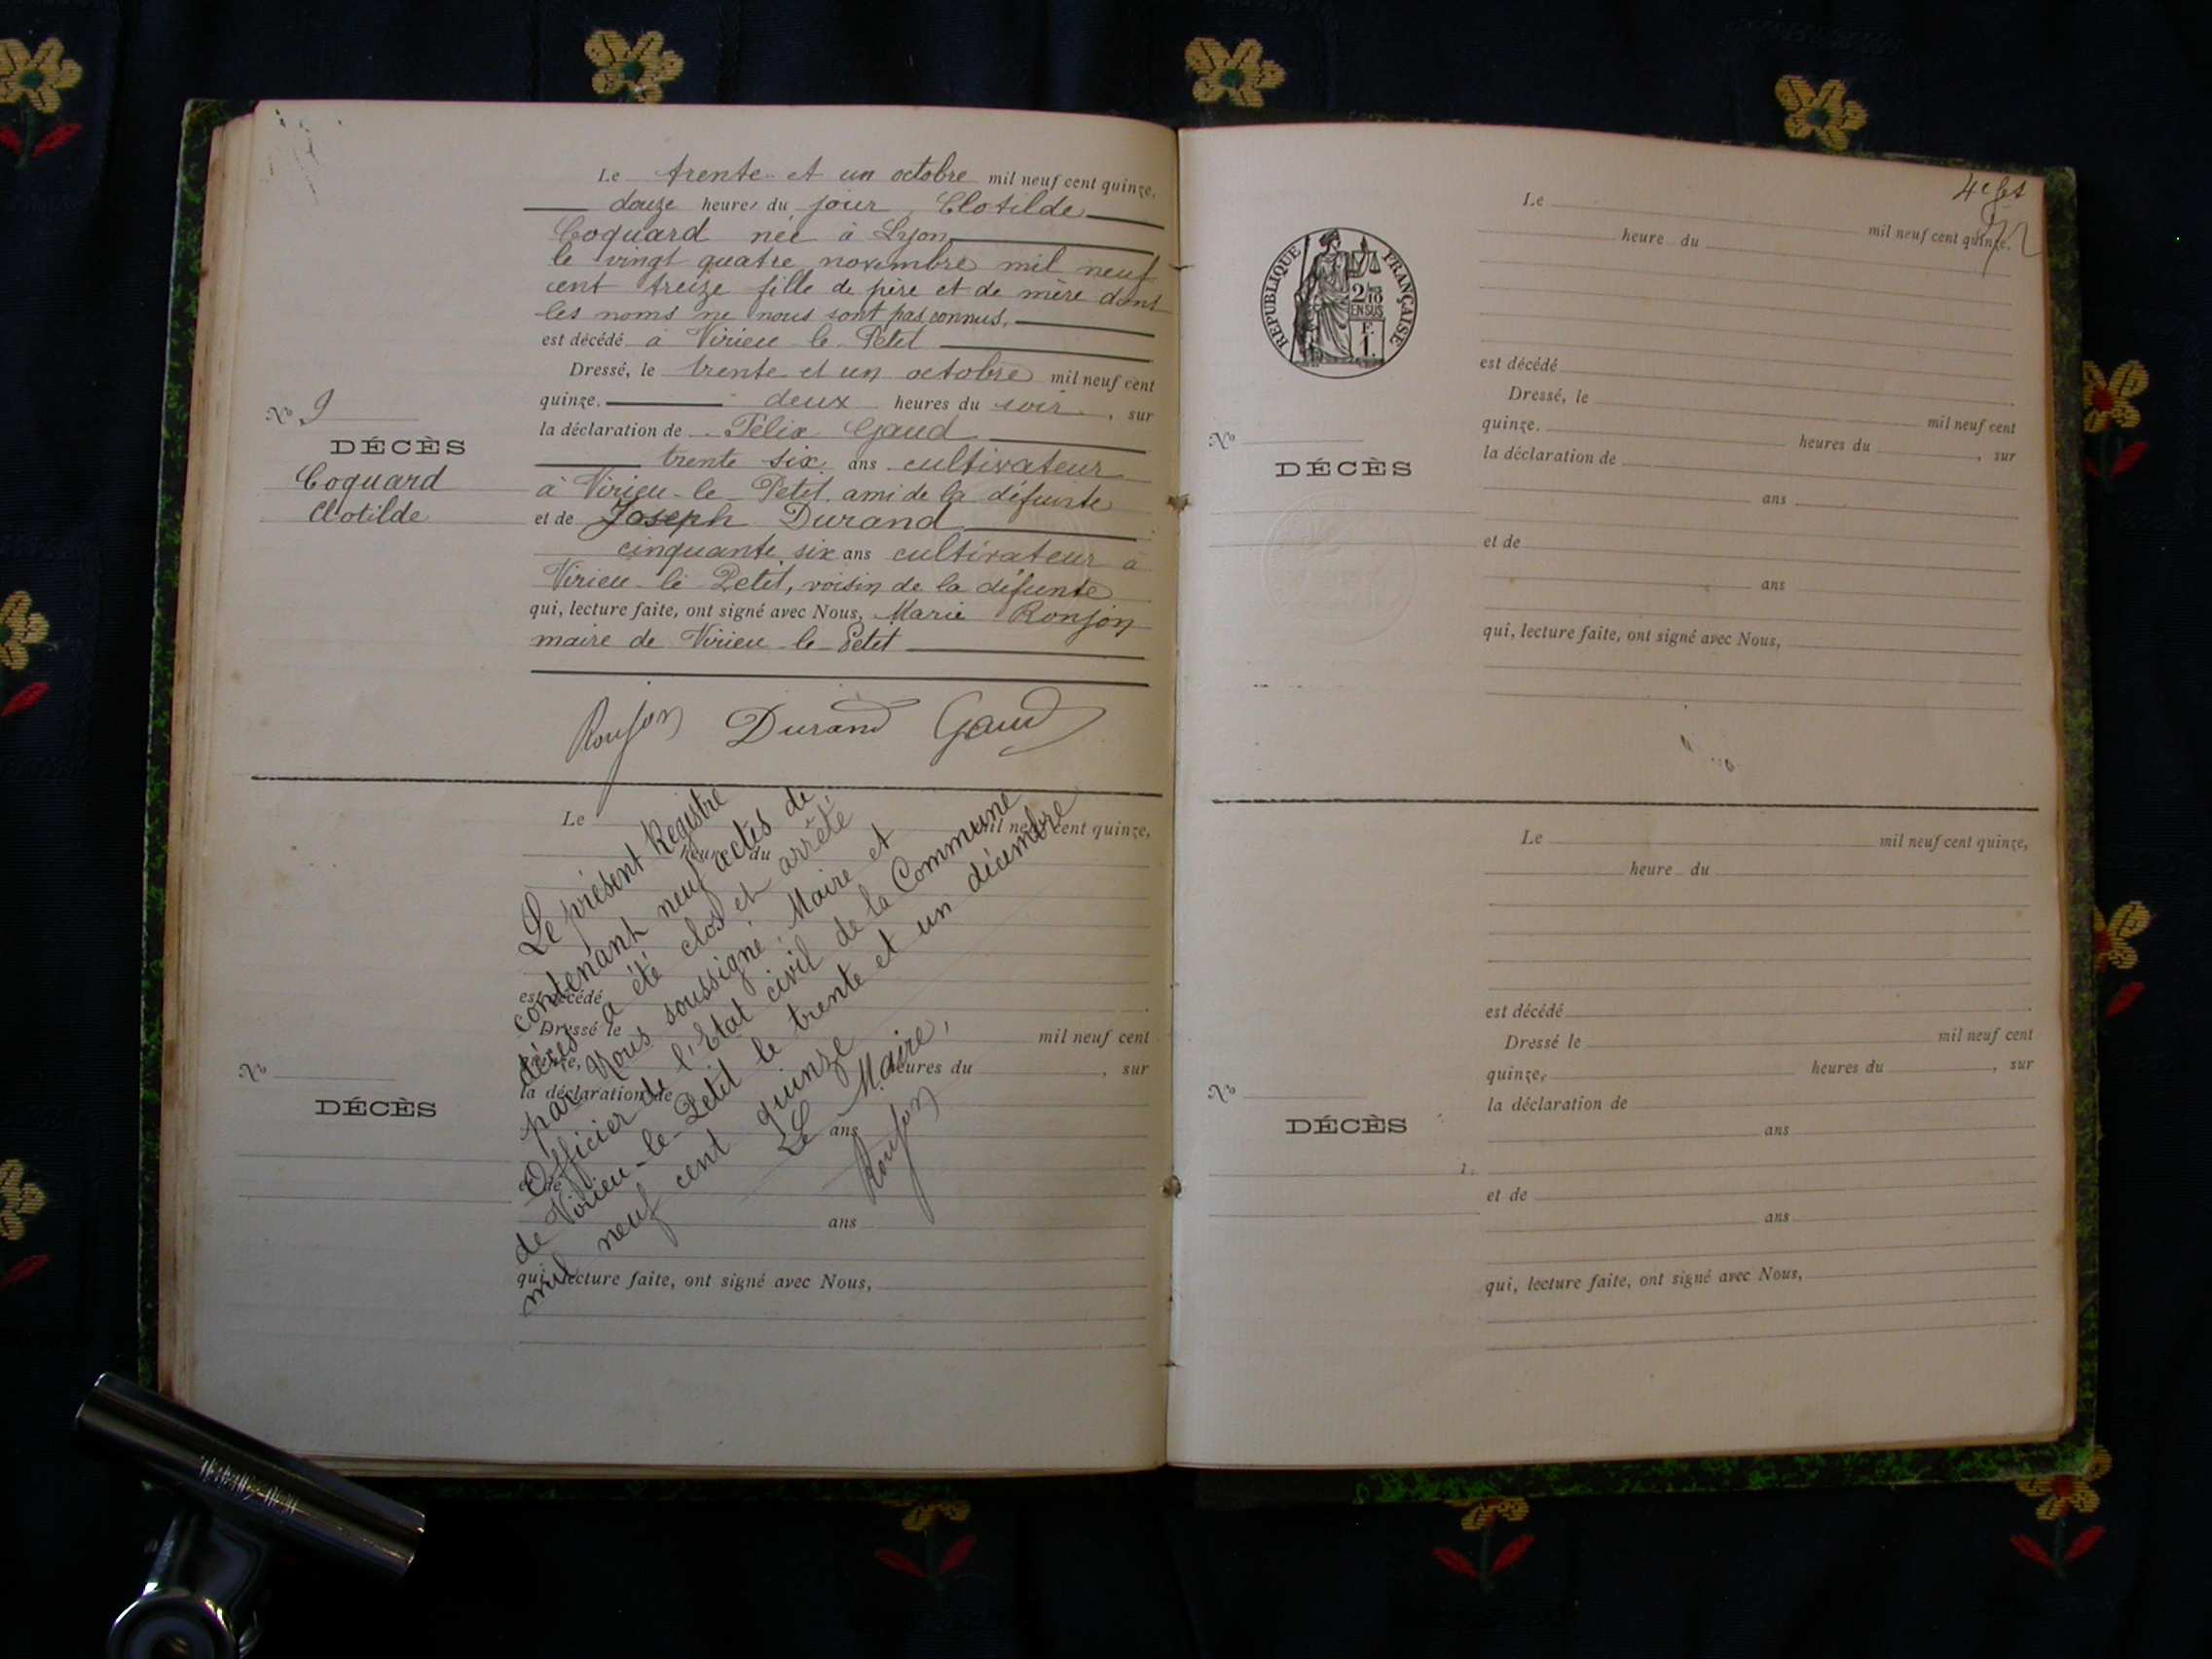 Le trente et un octobre mil neuf cent quinze,
douze heures du jour, Clotilde
Coquard née à Lyon
le vingt quatre novembre mil neuf
cent treize fille de père et de mère dont
les noms ne nous sont pas connus,
est décédé à Virieu-le-Petit
Dressé, le trente et un octobre mil neuf cent
quinze. deux heures du soir, sur
la déclaration de Félix Gaud
trente six ans cultivateur
à Virieu-le-Petit ami de la défunte
et de Joseph Durand
cinquante six ans cultivateur à
Virieu-le-Petit, voisin de la défunte
qui, lecture faite, ont signé avec Nous, Marie Ronjon
maire de Virieu-le-Petit
Ronjon Durand Gaud
No 9
DÉCÈS
Coquard
Clotilde
Le mil neuf cent quinze,
heure du
est décédé
Dressé le mil neuf cent
quinze, heures du , sur
la déclaration de
ans
et de
ans
qui, lecture faite, ont signé avec Nous,
No
DÉCÈS
Le présent Registre
contenant neuf actes de
décès a été clos et arrêté
par Nous soussigné, Maire et
Officier de l'Etat civil de la Commune
de Virieu-le-Petit le trente et un décembre
mil neuf cent quinze
Le Maire,
Ronjon
4e
REPUBLIQUE FRANÇAISE
2/10
EN SUS
F.
1.
Le mil neuf cent quinze.
heure du
est décédé
Dressé, le mil neuf cent
quinze. heures du , sur
la déclaration de
ans
et de
ans
qui, lecture faite, ont signé avec Nous,
No
DÉCÈS
Le mil neuf cent quinze,
heure du
est décédé
Dressé le mil neuf cent
quinze, heures du , sur
la déclaration de
ans
et de
ans
qui, lecture faite, ont signé avec Nous,
No
DÉCÈS